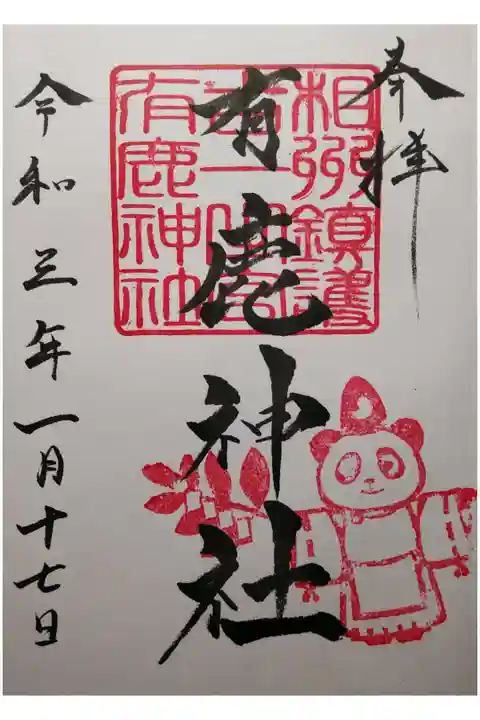 奉拝
有鹿神社
令和三年一月十七日
相州鎮護
有鹿神社